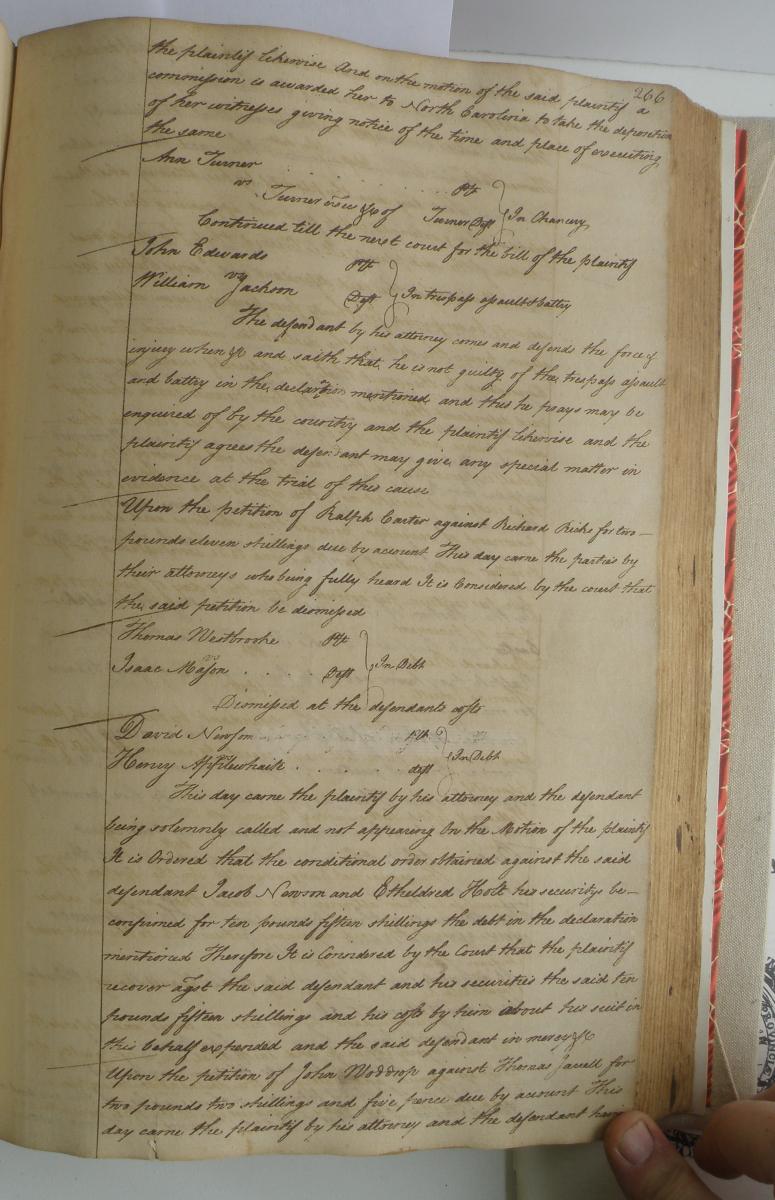 266
the plaintif likewise And on the motion of the said plaintif a
commission is awarded her to North Carolina to take the deposition
of her witnesses giving notice of the time and place of executing
the same
Ann Turner Plt
vs
Turner exec &c of Turner Deft In Chancery
Continued till the next court for the bill of the plaintif
John Edwards Plt
vs
William Jackson Deft In trespass assault & battry
The defendant by his attorney comes and defends the force &
injury when &c and saith that he is not guilty of the trespass assault
and battry in the declaration mentioned and this he prays may be
enquired of by the country and the plaintif likewise and the
plaintif agrees the defendant may give any special matter in
evidence at the trial of this cause
Upon the petition of Ralph Carter against Richard Ricks for two
pounds eleven shillings due by account This day came the parties by
their attorneys who being fully heard It is Considered by the court that
the said petition be dismissed
Thomas Westbrooke Plt
vs
Isaac Mason Deft In Debt
Dismissed at the defendants costs
David Newsom Plt
Henry Applewhaite deft In Debt
This day came the plaintif by his attorney and the defendant
being solemnly called and not appearing On the Motion of the plaintif
It is Ordered that the conditional order obtained against the said
defendant Jacob Newson and Etheldred Holt his security be
confirmed for ten pounds fifteen shillings the debt in the declaration
mentioned Therefore It is Considered by the Court that the plaintif
recover agst the said defendant and his securities the said ten
pounds fifteen shillings and his costs by him about his suit in
this behalf expended and the said defendant in mercy &c
Upon the petition of John Woddrop against Thomas for
two pounds two shillings and five pence due by account This
day came the plaintif by his attorney and the defendant